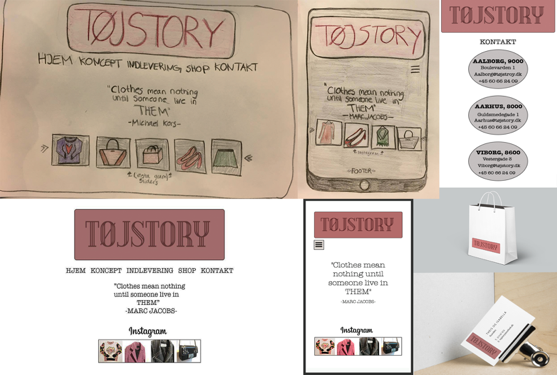 TØJSTORY
HJEM KONCEPT INDLEVERING SHOP KONTAKT
"Clothes mean nothing
until someone live in
THEM"
-Michael Kors-
TØJSTORY
"Clothes mean nothing
until someone live in
THEM"
-MARC JACOBS-
-FOOTER-
TØJSTORY
KONTAKT
AALBORG, 9000
Boulevarden 1
+45 60 66 24 09
AARHUS, 8000
Guldsmedgade 1
+45 60 66 24 09
VIBORG, 8600
Vestergade 5
+45 60 66 24 09
TØJSTORY
HJEM KONCEPT INDLEVERING SHOP KONTAKT
"Clothes mean nothing
until someone live in
THEM"
-MARC JACOBS-
Instagram
TØJSTORY
"Clothes mean
nothing until
someone live in
THEM"
-MARC JACOBS-
Instagram
TØJSTORY
TØJSTORY